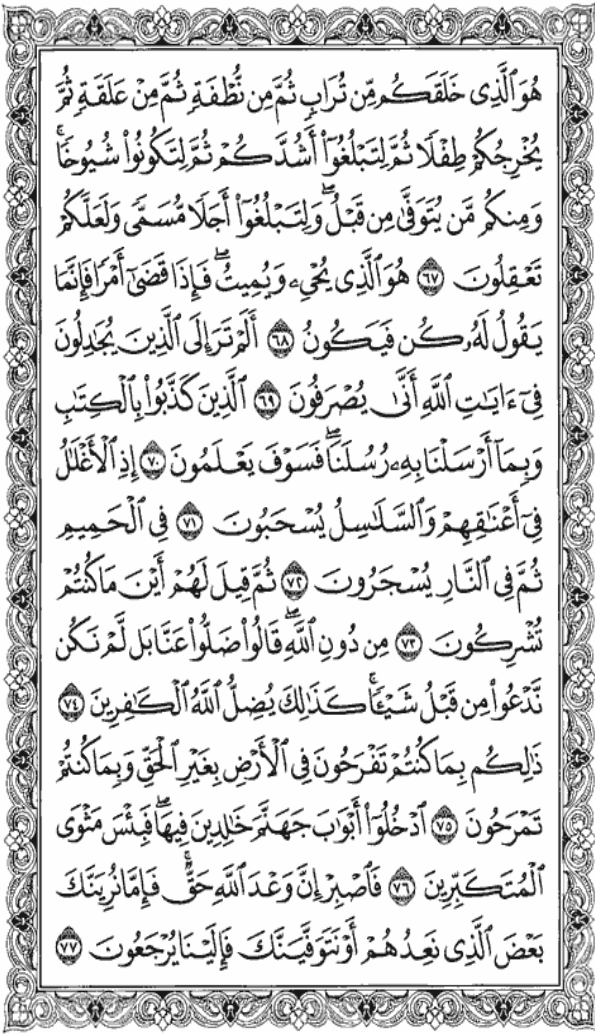 هُوَ ٱلَّذِى خَلَقَكُم مِّن تُرَابٍ ثُمَّ مِن نُّطْفَةٍ ثُمَّ مِنْ عَلَقَةٍ ثُمَّ
يُخْرِجُكُمْ طِفْلًا ثُمَّ لِتَبْلُغُوٓا۟ أَشُدَّكُمْ ثُمَّ لِتَكُونُوا۟ شُيُوخًا ۚ
وَمِنكُم مَّن يُتَوَفَّىٰ مِن قَبْلُ ۖ وَلِتَبْلُغُوٓا۟ أَجَلًا مُّسَمًّى وَلَعَلَّكُمْ
تَعْقِلُونَ ٦٧ هُوَ ٱلَّذِى يُحْىِۦ وَيُمِيتُ ۖ فَإِذَا قَضَىٰٓ أَمْرًا فَإِنَّمَا
يَقُولُ لَهُۥ كُن فَيَكُونُ ٦٨ أَلَمْ تَرَ إِلَى ٱلَّذِينَ يُجَـٰدِلُونَ
فِىٓ ءَايَـٰتِ ٱللَّهِ أَنَّىٰ يُصْرَفُونَ ٦٩ ٱلَّذِينَ كَذَّبُوا۟ بِٱلْكِتَـٰبِ
وَبِمَآ أَرْسَلْنَا بِهِۦ رُسُلَنَا ۖ فَسَوْفَ يَعْلَمُونَ ٧٠ إِذِ ٱلْأَغْلَـٰلُ
فِىٓ أَعْنَـٰقِهِمْ وَٱلسَّلَـٰسِلُ يُسْحَبُونَ ٧١ فِى ٱلْحَمِيمِ
ثُمَّ فِى ٱلنَّارِ يُسْجَرُونَ ٧٢ ثُمَّ قِيلَ لَهُمْ أَيْنَ مَا كُنتُمْ
تُشْرِكُونَ ٧٣ مِن دُونِ ٱللَّهِ ۖ قَالُوا۟ ضَلُّوا۟ عَنَّا بَل لَّمْ نَكُن
نَّدْعُوا۟ مِن قَبْلُ شَيْـًٔا ۚ كَذَٰلِكَ يُضِلُّ ٱللَّهُ ٱلْكَـٰفِرِينَ ٧٤
ذَٰلِكُم بِمَا كُنتُمْ تَفْرَحُونَ فِى ٱلْأَرْضِ بِغَيْرِ ٱلْحَقِّ وَبِمَا كُنتُمْ
تَمْرَحُونَ ٧٥ ٱدْخُلُوٓا۟ أَبْوَٰبَ جَهَنَّمَ خَـٰلِدِينَ فِيهَا ۖ فَبِئْسَ مَثْوَى
ٱلْمُتَكَبِّرِينَ ٧٦ فَٱصْبِرْ إِنَّ وَعْدَ ٱللَّهِ حَقٌّ ۚ فَإِمَّا نُرِيَنَّكَ
بَعْضَ ٱلَّذِى نَعِدُهُمْ أَوْ نَتَوَفَّيَنَّكَ فَإِلَيْنَا يُرْجَعُونَ ٧٧